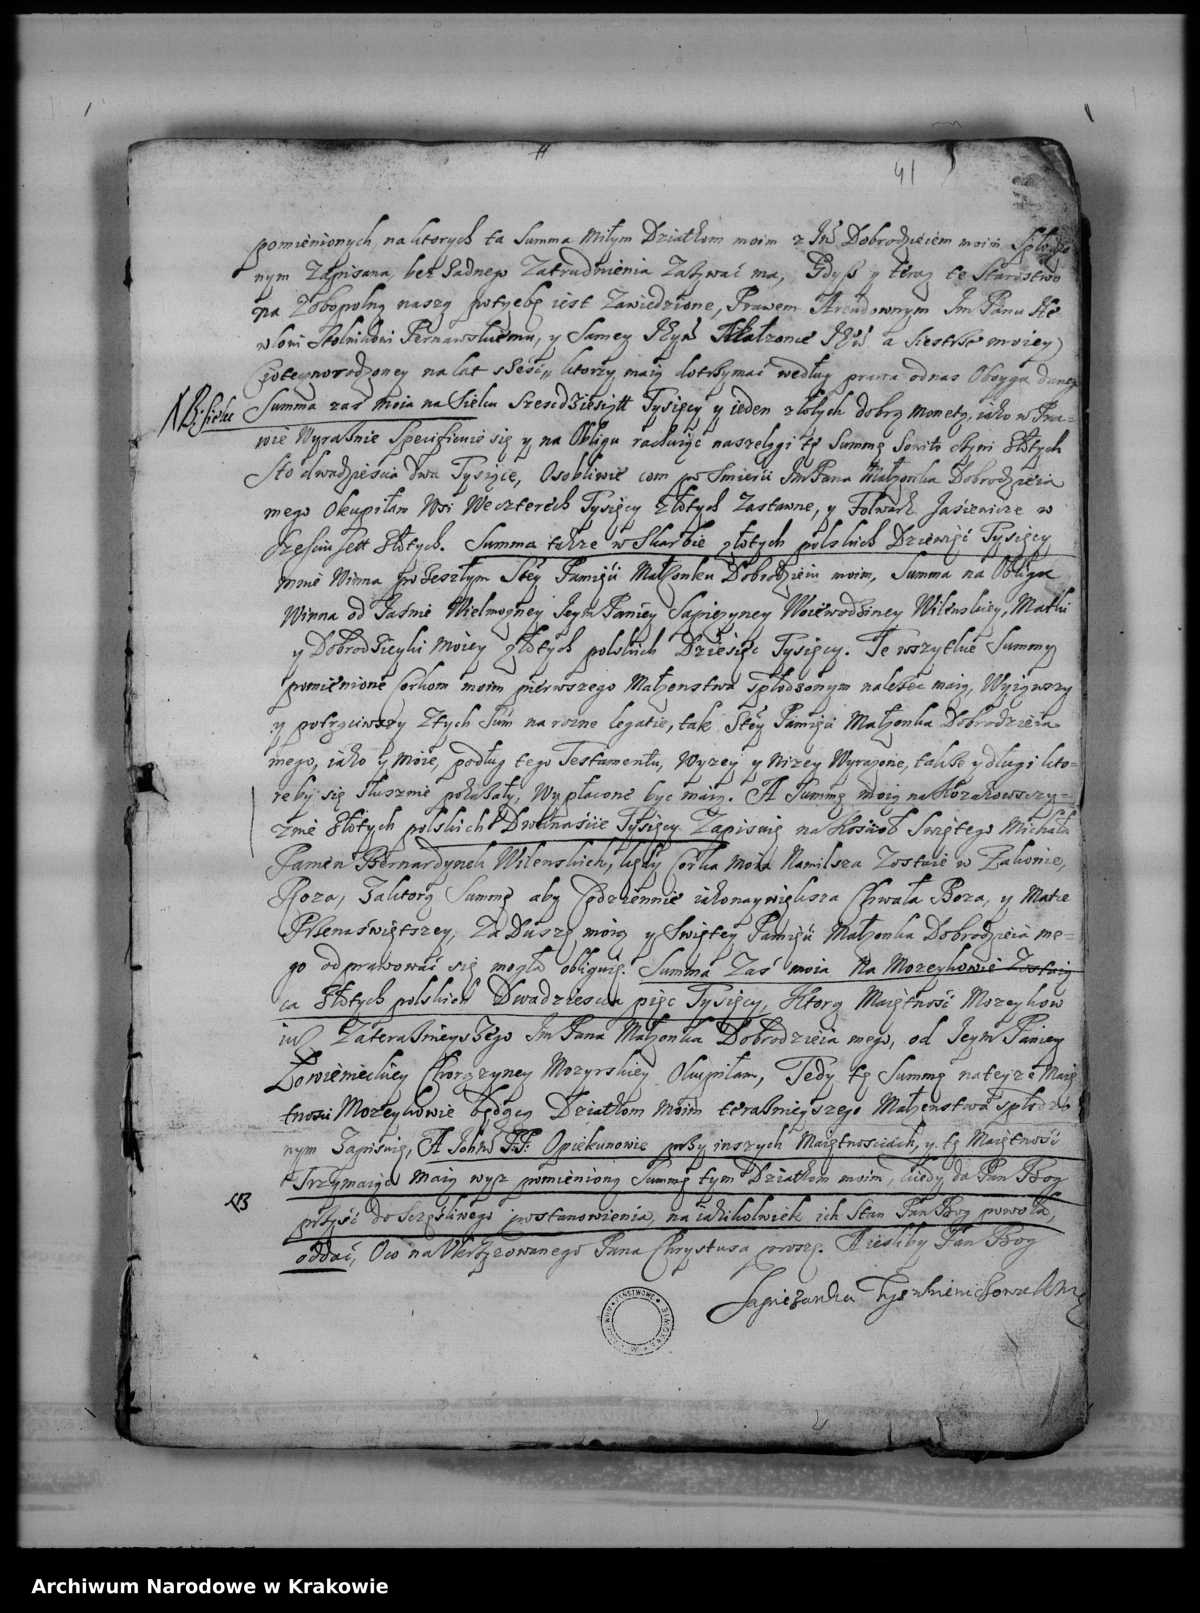 41
pomienionych, na ktorych ta Summa miłym Dziatkom moim z Dobrodzieiem moim
nym Zapisana, bez żadnego Zatrudnienia Zażywać ma, Gdyß y teraz te Starostwo
na Zobopolną naszą potrzebę iest Zawiedzione, Prawem Arendownym Im Panu
Stolnikowi Pernawskiemu, y Samey Małżonce a Siestrze moiey
na lat sześć, ktorzy maią dotrzymać według prawa od nas Oboyga
NB: Sielec
Summa zaś moia na Sielcu Szescdziesiąt Tysięcy y ieden złotych dobrą monetą, iako w Pra-
wie Wyraźnie Specificuie się y na Obligu rachuiąc tę Summę złotych
Sto dwadziescia dwa Tysiące, Osobliwie com po Smierci Im Pana Małżonka Dobrodzieia
mego Okupiłam Wsi We czterech Tysięcy złotych Zastawne, y Folwark w
złotych. Summa także w Skarbie złotych polskich Dziewięć Tysięcy
mnie Winna po Zeszłym Stey Pamięci Małżonku Dobrodzieiu moim, Summa na Obligu
Winna od Jasnie Wielmozney Ieym Paniey Sapiezyney Woiewodziney Wilenskiey, Matki
y Dobrodzieyki moiey złotych polskich Dziesięc Tysięcy. Te wszytkie Summy
pomienione Corkom moim pierwszego Małżenstwa spłodzonym należec maią, Wyiąwszy
y potrąciwszy z tych Sum na rozne legatie, tak Stey Pamięci Małżonka Dobrodzieia
mego, iako y moie, podług tego Testamentu, Wyzey y nizey Wyrażone, także y długi kto-
reby się słusznie pokazały, Wypłacone byc maią. A Summę moią na Kozakowszczy-
znie złotych polskich Dwanascie Tysięcy Zapisuię na Kosciół Swiętego Michała
Panien Bernardynek Wilenskich, kędy Corka moia Kamilsza Zostaie w Zakonie,
Roza, Za ktorą Summę aby Codziennie iako naywiększa Chwała Boza, y Matce
Przenaświętszey, Za Duszę moią y Swiętey Pamięci Małżonka Dobrodzieia me-
go odprawować się mogła obliguię. Summa Zaś moia Na Mozeykowie Zostaią
ca złotych polskich Dwadziescia pięc Tysięcy, Ktorą Maiętność Mozeykow
iuß Za teraznieyszego Im Pana Małżonka Dobrodzieia mego, od Ieym Paniey
Chorązyney Mozyrskiey Okupiłam, Tedy tę Summę na teyze Maię
tnosci Mozeykowie będącą Dziatkom moim teraznieyszego Małżenstwa spłodzo
nym Zapisuię, A Opiekunowie przy inszych Maiętnosciach, y tę Maiętność
Trzymaiąc maią wyz pomienioną Summę tym Dziatkom moim, kiedy da Pan Bog
NB
przyść do Sczęsliwego postanowienia, na iakikolwiek ich Stan Pan Bog powoła,
oddać, Oco na Ukrzyzowanego Pana Chrystusa proszę. A iesliby Pan Bog
Archiwum Narodowe w Krakowie